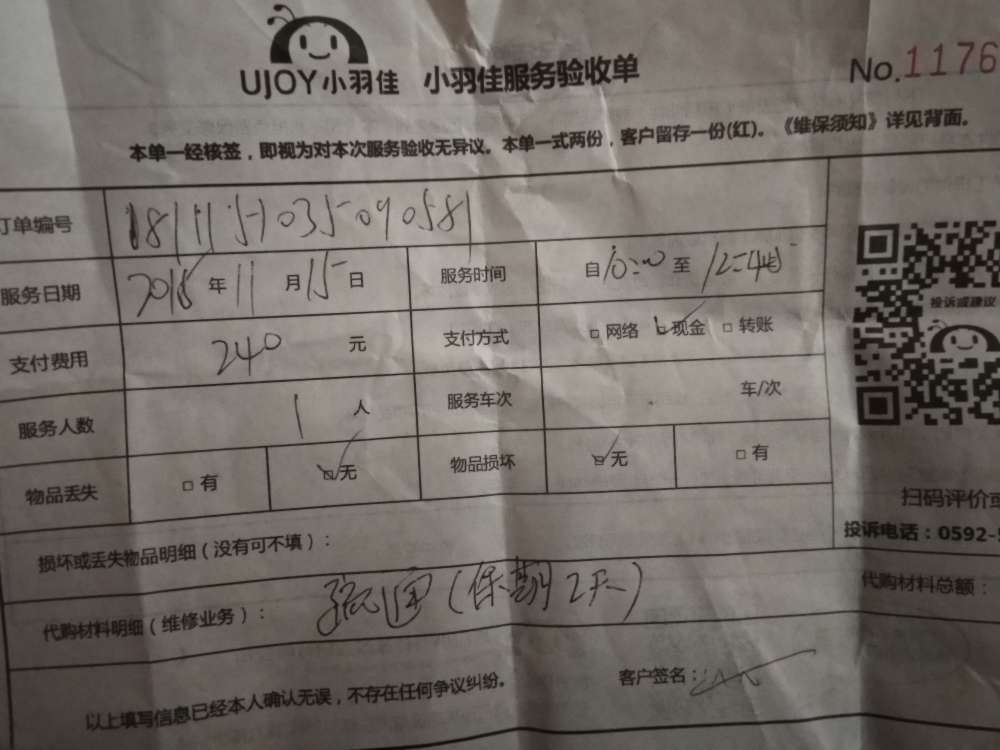 UJOY小羽佳 小羽佳服务验收单 No.1176
本单一经核签，即视为对本次服务验收无异议。本单一式两份，客户留存一份(红)。《维保须知》详见背面。
订单编号 1811151035090581
服务日期 2018年11月15日 服务时间 自10:00至
支付费用 240元 支付方式 □网络 □现金 □转账
投诉或建议
服务人数 1人 服务车次 车/次
物品丢失 □有 □无 物品损坏 □无 □有
扫码评价或
投诉电话：0592-5
损坏或丢失物品明细（没有可不填）：
代购材料明细（维修业务）： 疏通（保期2天） 代购材料总额：
以上填写信息已经本人确认无误，不存在任何争议纠纷。 客户签名：